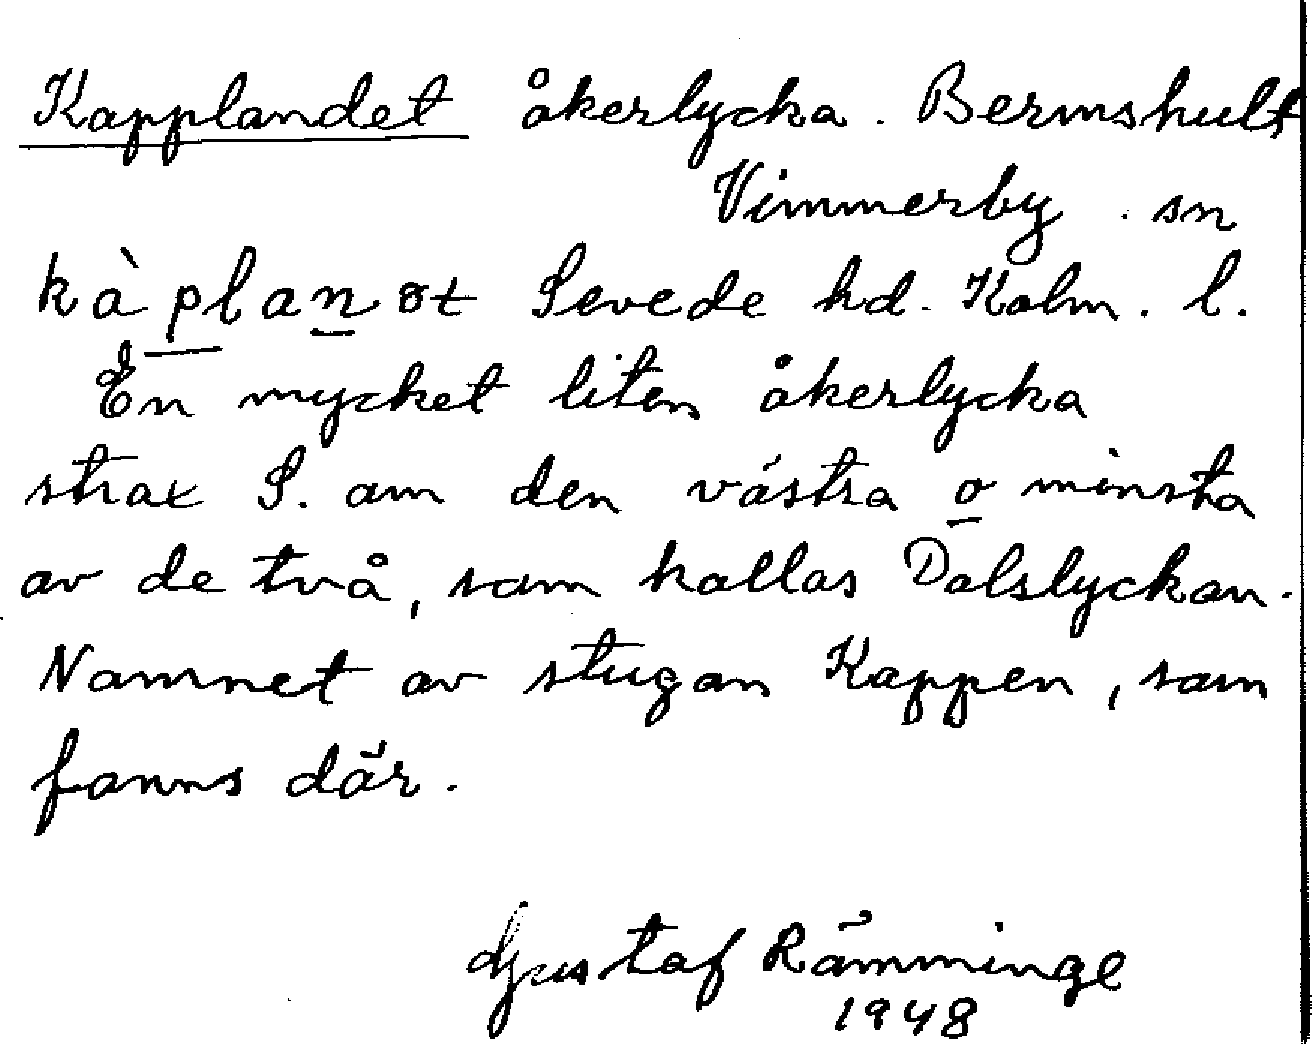 Kapplandet åkerlycka. Bermshult
Vimmerby. sn
kàplanət Sevede hd. Kalm. l.
En mycket liten åkerlycka
strax S. om den västra o minsta
av de två, som kallas Dalslyckan.
Namnet av stugan Kappen, som
fanns där.
Gustaf Rämminge
1948